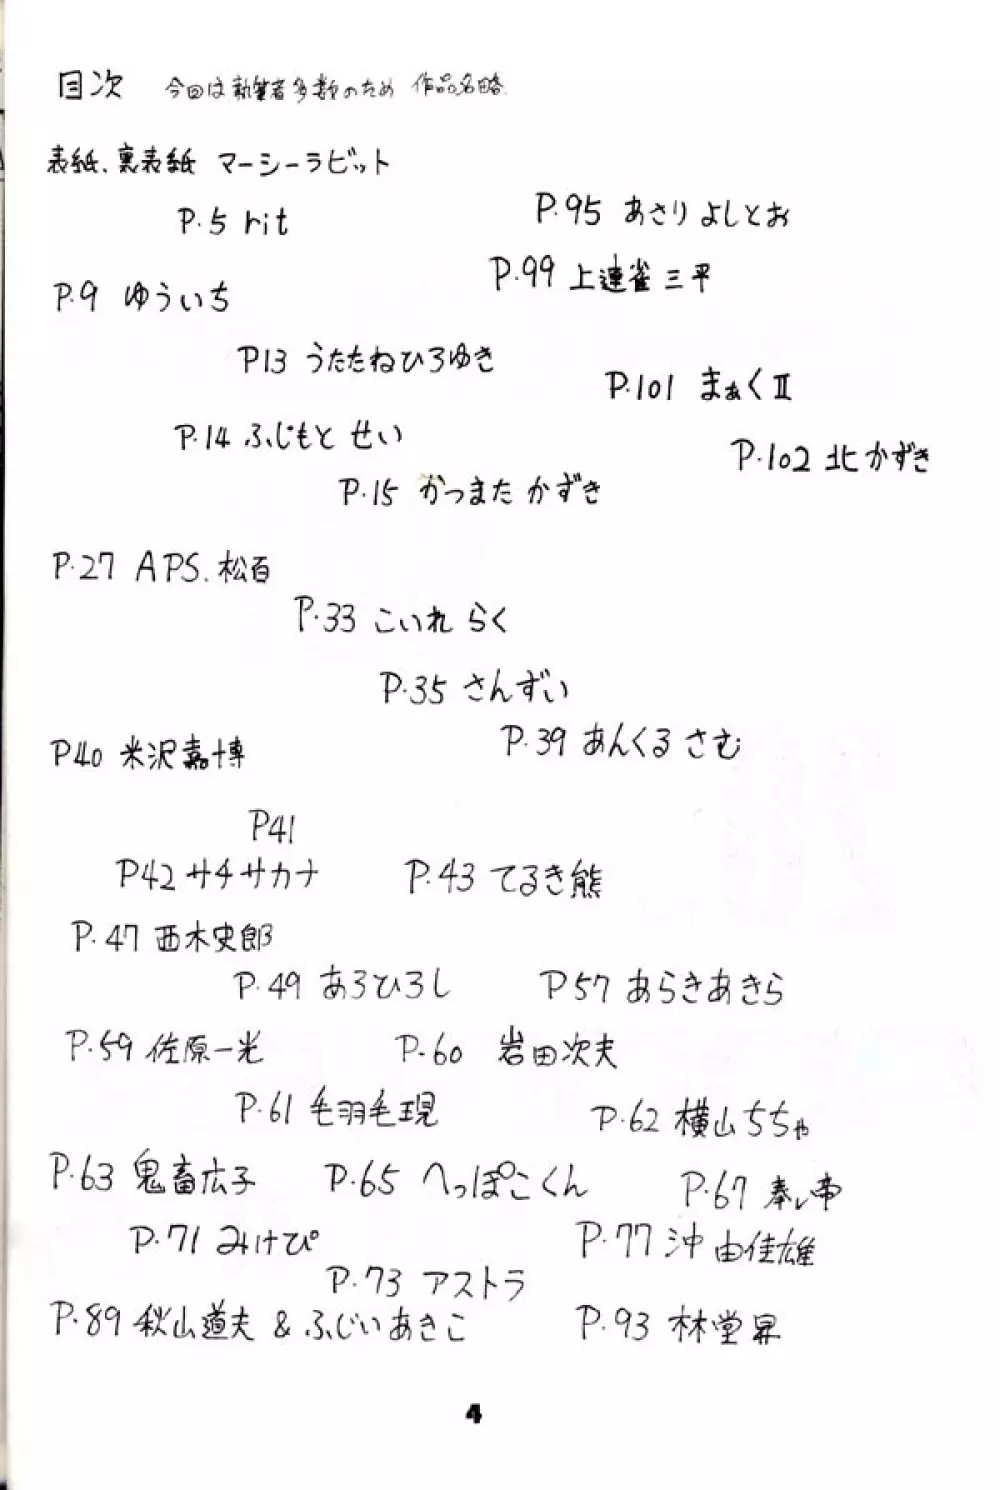 目次 今回は執筆者多数のため 作品名略.
表紙、裏表紙 マーシーラビット
P.5 rit
P.95 あさりよしとお
P.99 上連雀三平
P.9 ゆういち
P13 うたたねひろゆき
P.101 まぁくⅡ
P.14 ふじもと せい
P.102 北かずき
P.15 かつまた かずき
P.27 APS.松百
P.33 こいれ らく
P.35 さんずい
P.39 あんくる さむ
P40 米沢嘉博
P41
P42 サチサカナ
P.43 てるき熊
P.47 西木史郎
P.49 あろひろし
P57 あらきあきら
P.59 佐原一光
P.60 岩田次夫
P.61 毛羽毛現
P.62 横山ちちゃ
P.63 鬼畜広子
P.65 へっぽこくん
P.67
P.71 みけぴ
P.77 沖由佳雄
P.73 アストラ
P.89 秋山道夫 & ふじいあきこ
P.93 林堂昇
4